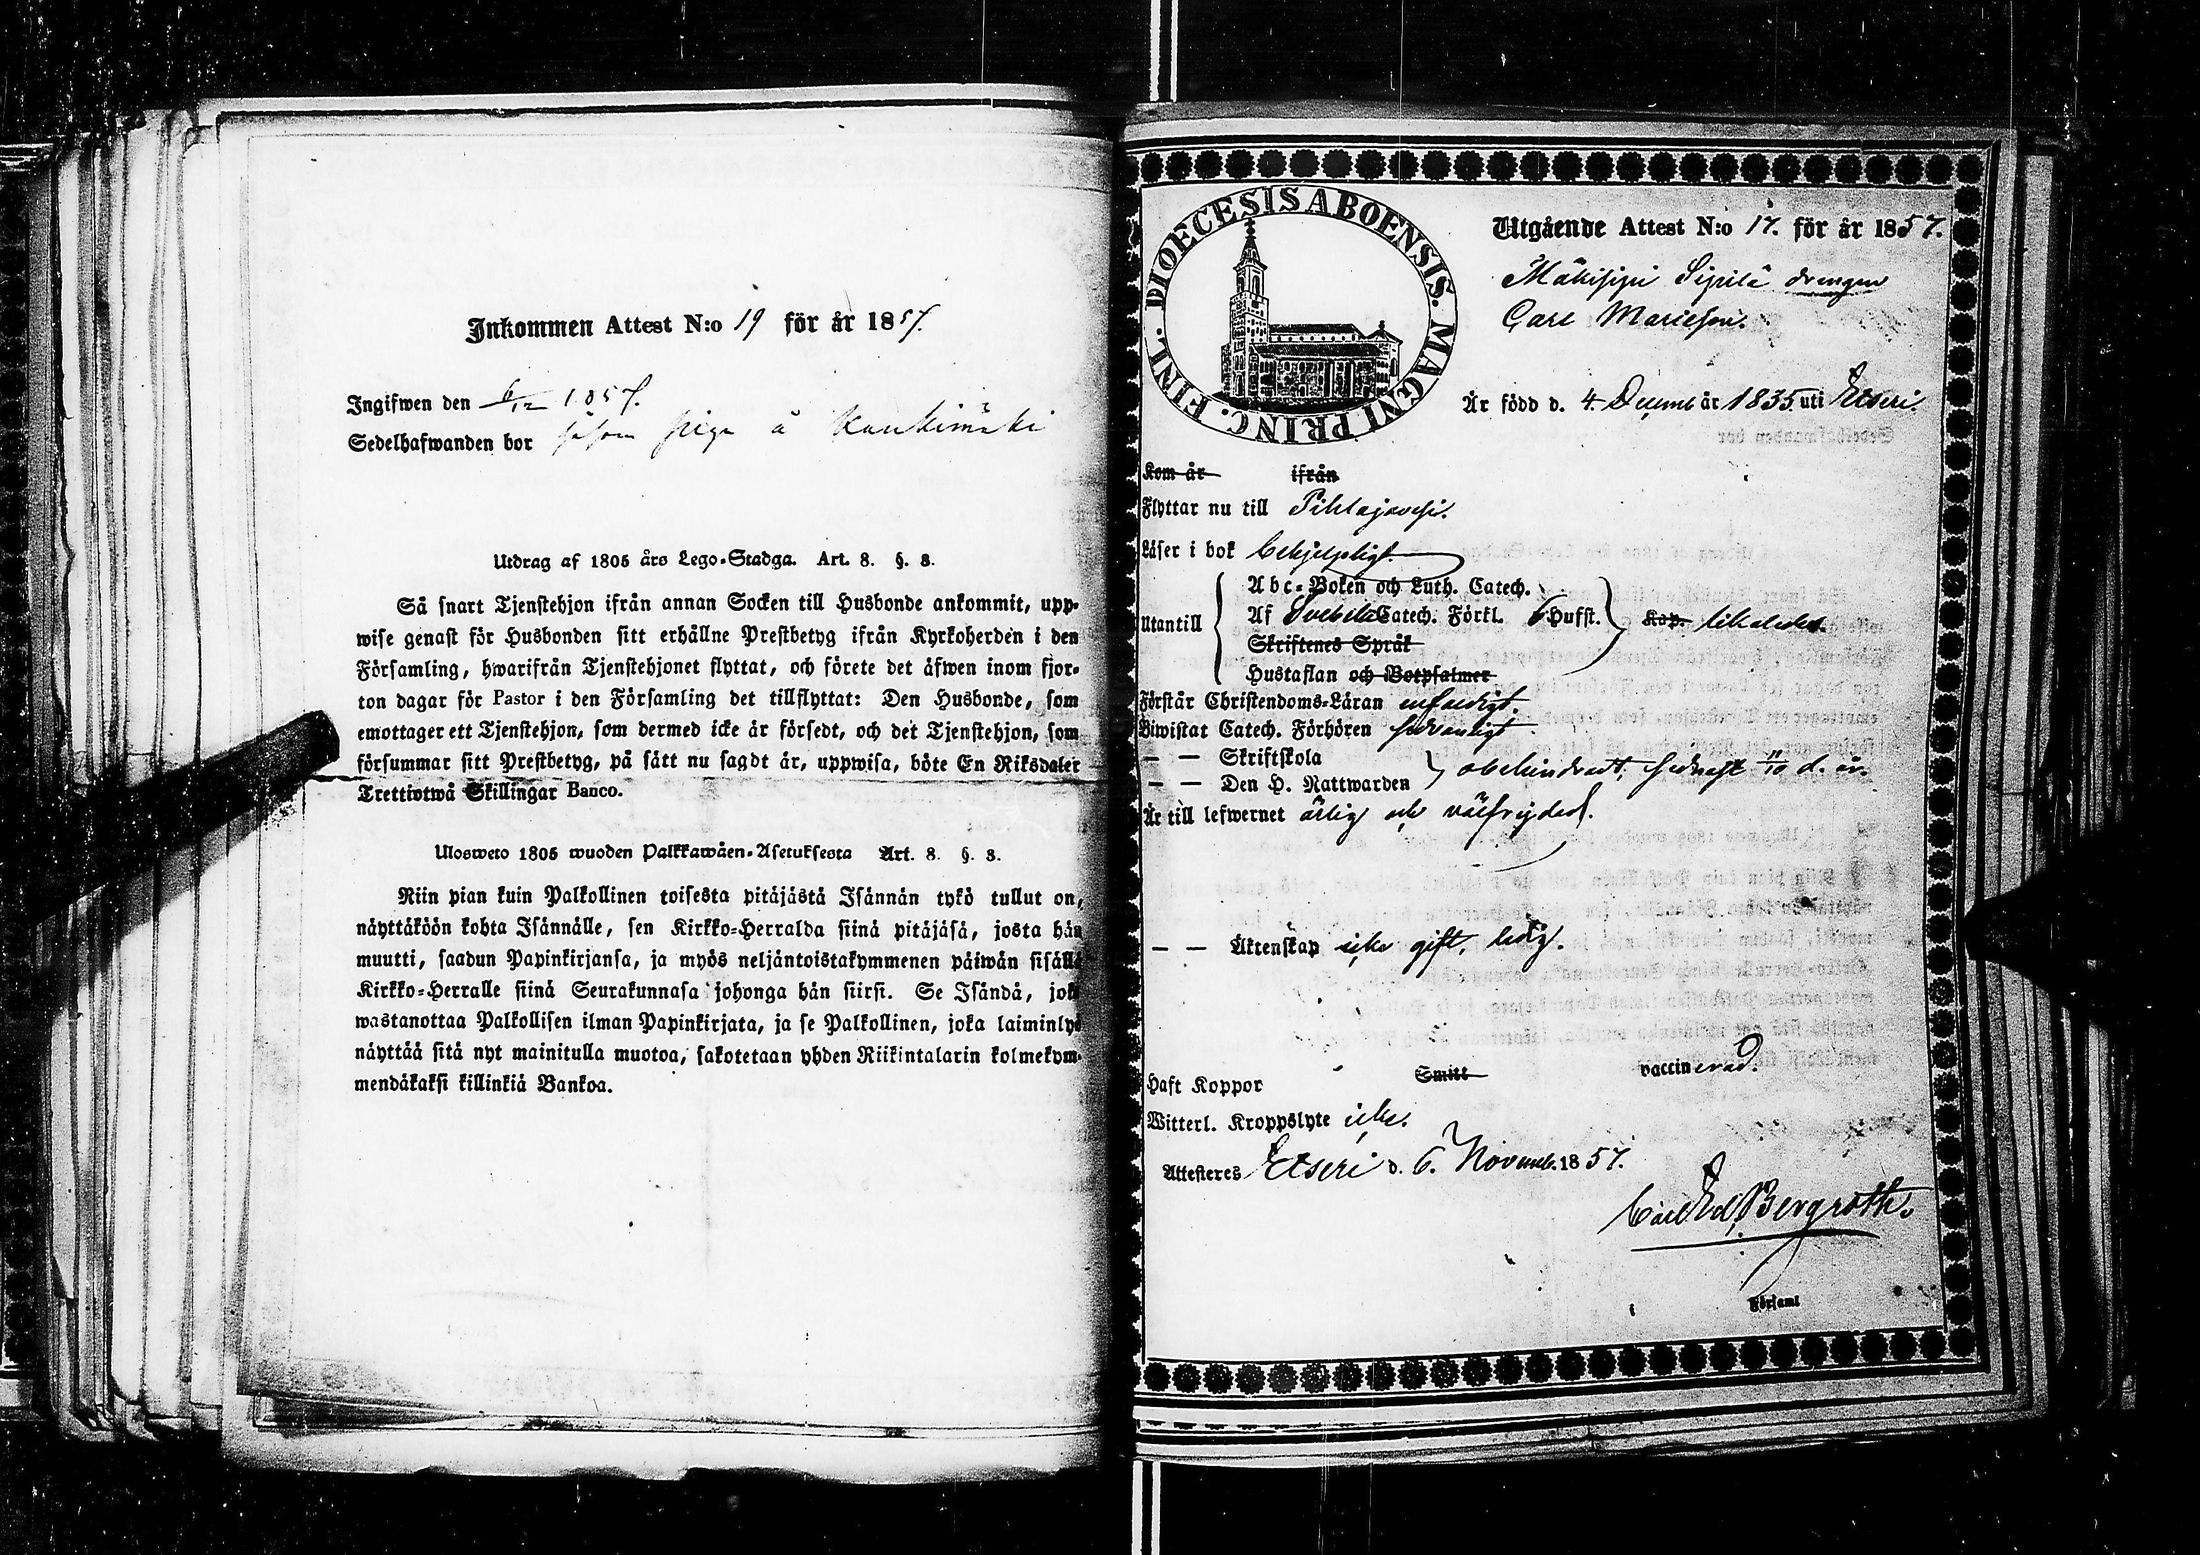 Inkommen Attest N:o 19 för år 1857.
Ingifwen den 6/12 1857.
Sedelhafwanden bor såsom piga å
Utdrag af 1805 års Lego-Stadga. Art. 8. §. 3.
Så snart Tjenstehjon ifrån annan Socken till Husbonde ankommit, upp-
wise genast för Husbonden sitt erhållne Prestbetyg ifrån Kyrkoherden i den
Församling, hwarifrån Tjenstehjonet flyttat, och förete det äfwen inom fjor-
ton dagar för Pastor i den Församling det tillflyttat: Den Husbonde, som
emottager ett Tjenstehjon, som dermed icke är försedt, och det Tjenstehjon, som
försummar sitt Prestbetyg, på sätt nu sagdt är, uppwisa, böte En Riksdaler
Trettiotwå Skillingar Banco.
Ulosweto 1805 wuoden Palkkawäen-Asetuksesta Art. 8. §. 3.
Niin pian kuin Palkollinen toisesta pitäjästä Isännän tykö tullut on,
näyttäköön kohta Isännälle, sen Kirkko-Herralda siinä pitäjäsä, josta hän
muutti, saadun Papinkirjansa, ja myös neljäntoistakymmenen päiwän sisällä
Kirkko-Herralle siinä Seurakunnasa johonga hän siirsi. Se Isändä, joka
wastanottaa Palkollisen ilman Papinkirjata, ja se Palkollinen, joka laiminlyö
näyttää sitä nyt mainitulla muotoa, sakotetaan yhden Riikintalarin kolmekym-
mendäkaksi killinkiä Bankoa.
DIOECESIS ABOENSIS. MAGNI PRINC. FINL.
Utgående Attest N:o 17. för år 1857.
Sipilä drengen
Carl Marieson.
Är född d. 4. Decemb år 1835 uti Etseri.
Kom år ifrån
Flyttar nu till Pihlajavesi.
Läser i bok behjelpligt.
Utantill
Abc-Boken och Luth. Catech.
Af Svebelii Catech. Förkl. 6 Hufst. Kap. likaledes.
Skriftenes Språk
Hustaflan och Botpsalmer
Förstår Christendoms-Läran enfaldigt.
Biwistat Catech. Förhören sedvanligt.
— — Skriftskola
— — Den H. Nattwarden obehindradt, sednast 11/10 d. år.
Är till lefwernet ärlig och välfrejdad.
— — Äktenskap icke gift, ledig.
Haft Koppor Smitt vaccinerad.
Witterl. Kroppslyte icke.
Attesteres Etseri d. 6. Novemb. 1857.
Carl Ed. Bergroth.
i Församl